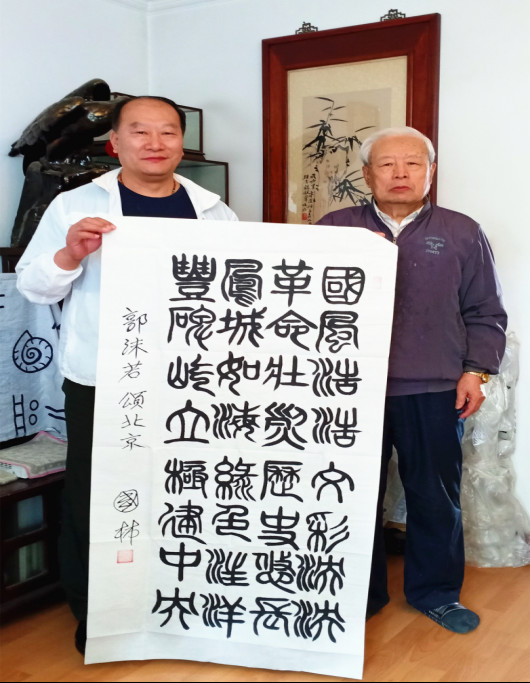 國風浩浩文彩泱泱
革命壯烈歷史悠長
鳳城如海綠色洋洋
豐碑屹立極建中央
郭沫若頌北京
國